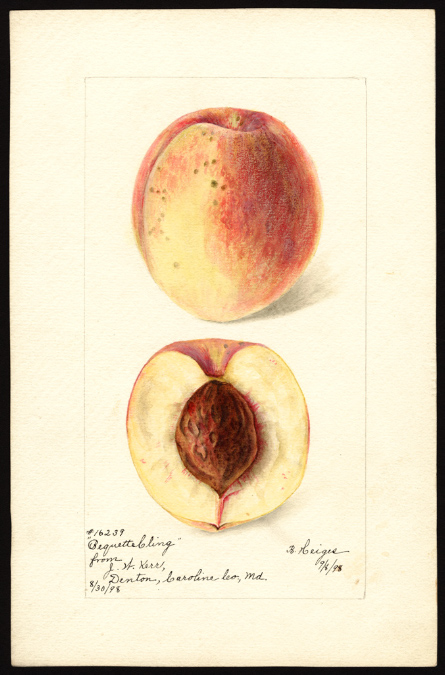 #16239
"Bequette Cling"
from
J. W. Kerr,
Denton, Caroline Co, Md.
8/30/98
B. Heiges
9/6/98